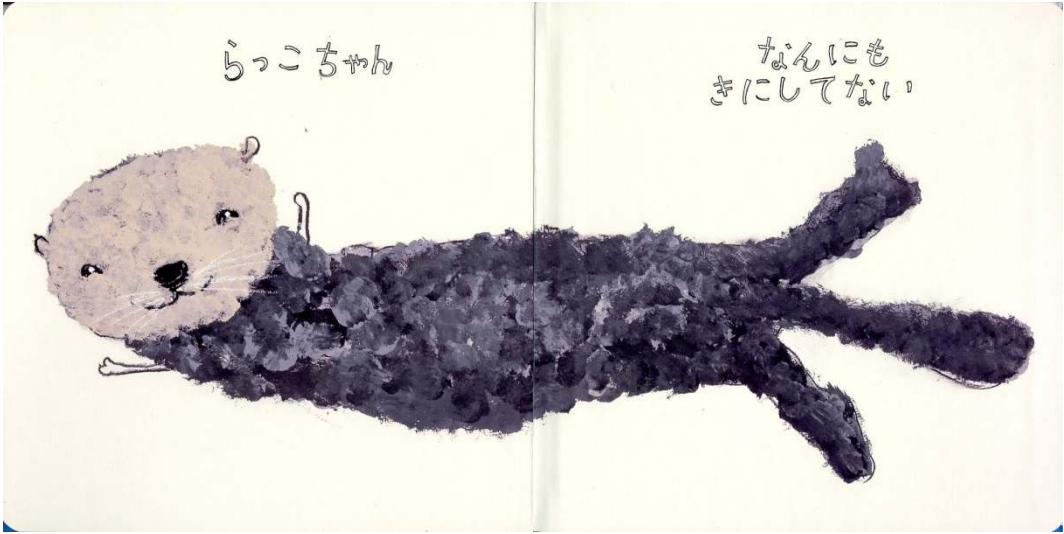 らっこちゃん
なんにも
きにしてない